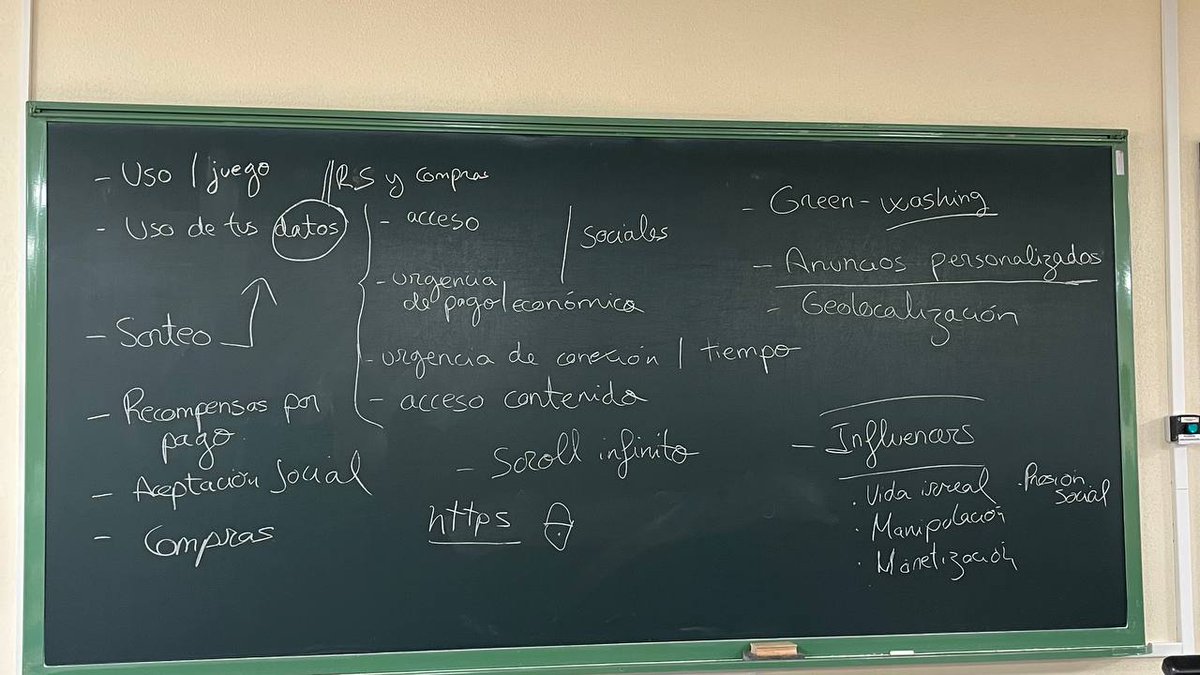 - Uso / juego
- Uso de tus datos
- Sorteo
- Recompensas por
pago
- Aceptación Social
- Compras
RS y compras
- acceso
/ Sociales
- urgencia
de pago/económica
- urgencia de conexión / tiempo
- acceso contenido
- Scroll infinito
https
- Green-washing
- Anuncios personalizados
- Geolocalización
- Influencers
· Vida irreal
· Manipulación
· Monetización
· Presión
social